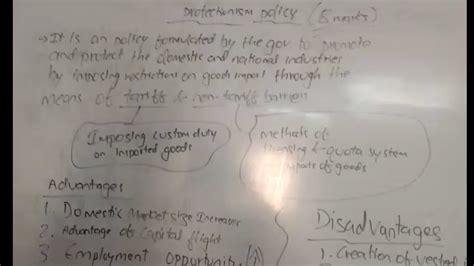 protectionism policy (5 marks)
→ It is an policy formulated by the gov to promote
and protect the domestic and national industries
by imposing restriction on goods import through the
means of tariff & non-tariff barrier
Imposing custom duty
on imported goods
methods of
licensing & quota system
imports of goods
Advantages
1. Domestic Market size Increases
2. Advantage of Capital flight
3 Employment Opportunity
Disadvantages
1. Creation of vested